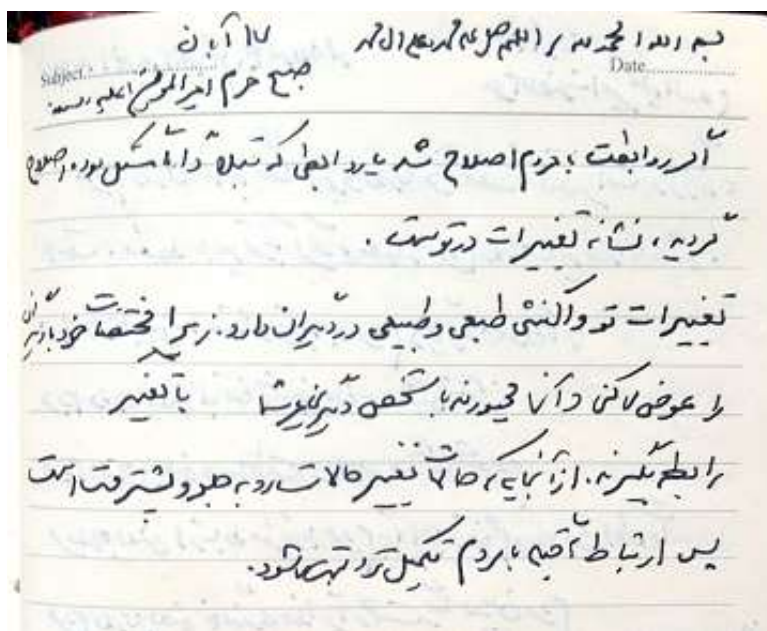 بسم الله الحمد لله اللهم صل علی محمد و علی آل محمد
۱۷ آبان
Subject
Date
صبح حرم امیرالمؤمنین علیه السلام
اگر روابطت با مردم اصلاح شد یا روابطی که قبلاً دائماً مشکل بود، اصلاح
گردید، نشانه تغییرات در توست.
تغییرات تو واکنشی طبعی و طبیعی در دیگران دارد. زیرا مختصات خود با دیگران
را عوض می‌کنی و آنها مجبورند با شخص دیگری
با تغییر
رابطه بگیرند. از آنجایی که حالا تغییر حالات رو به جلو و پیشرفت است
پس ارتباط مردم تکمیل‌تر و بهتر می‌شود.